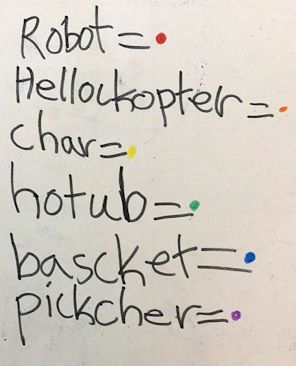 Robot=
Hellockopter=
char=
hotub=
bascket=
pickcher=